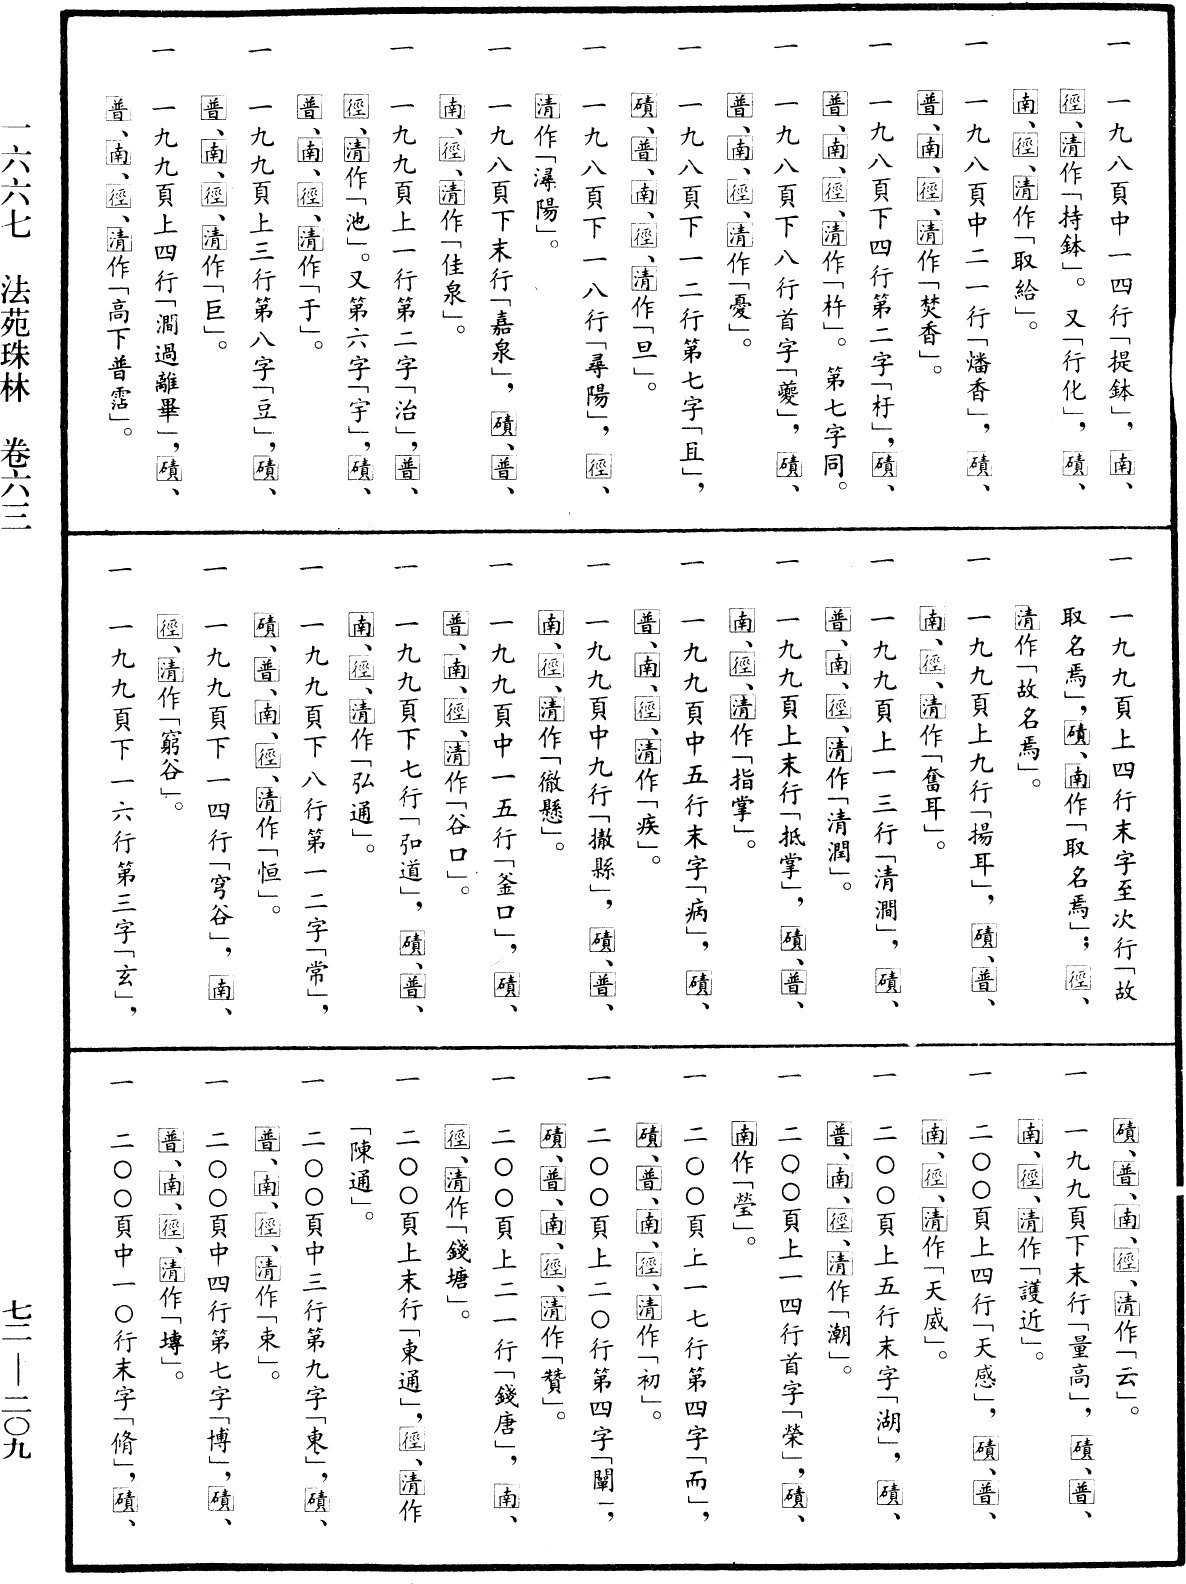 一　一九八頁中一四行「提鉢」，南、
徑、清作「持鉢」。又「行化」，磧、
南、徑、清作「取給」。
一　一九八頁中二一行「燔香」，磧、
普、南、徑、清作「焚香」。
一　一九八頁下四行第二字「杅」，磧、
普、南、徑、清作「杵」。第七字同。
一　一九八頁下八行首字「夔」，磧、
普、南、徑、清作「憂」。
一　一九八頁下一二行第七字「且」，
磧、普、南、徑、清作「旦」。
一　一九八頁下一八行「尋陽」，徑、
清作「潯陽」。
一　一九八頁下末行「嘉泉」，磧、普、
南、徑、清作「佳泉」。
一　一九九頁上一行第二字「治」，普、
徑、清作「池」。又第六字「宇」，磧、
普、南、徑、清作「于」。
一　一九九頁上三行第八字「豆」，磧、
普、南、徑、清作「巨」。
一　一九九頁上四行「㵎過離畢」，磧、
普、南、徑、清作「高下普霑」。
一　一九九頁上四行末字至次行「故
取名焉」，磧、南作「取名焉」；徑、
清作「故名焉」。
一　一九九頁上九行「揚耳」，磧、普、
南、徑、清作「奮耳」。
一　一九九頁上一三行「清澗」，磧、
普、南、徑、清作「清潤」。
一　一九九頁上末行「抵掌」，磧、普、
南、徑、清作「指掌」。
一　一九九頁中五行末字「病」，磧、
普、南、徑、清作「疾」。
一　一九九頁中九行「撤縣」，磧、普、
南、徑、清作「徹懸」。
一　一九九頁中一五行「釜口」，磧、
普、南、徑、清作「谷口」。
一　一九九頁下七行「弘道」，磧、普、
南、徑、清作「弘通」。
一　一九九頁下八行第一二字「常」，
磧、普、南、徑、清作「恒」。
一　一九九頁下一四行「穹谷」，南、
徑、清作「窮谷」。
一　一九九頁下一六行第三字「玄」，
磧、普、南、徑、清作「云」。
一　一九九頁下末行「量高」，磧、普、
南、徑、清作「護近」。
一　二〇〇頁上四行「天感」，磧、普、
南、徑、清作「天威」。
一　二〇〇頁上五行末字「湖」，磧、
普、南、徑、清作「潮」。
一　二〇〇頁上一四行首字「榮」，磧、
南作「瑩」。
一　二〇〇頁上一七行第四字「而」，
磧、普、南、徑、清作「初」。
一　二〇〇頁上二〇行第四字「闡」，
磧、普、南、徑、清作「贊」。
一　二〇〇頁上二一行「錢唐」，南、
徑、清作「錢塘」。
一　二〇〇頁上末行「東通」，徑、清作
「陳通」。
一　二〇〇頁中三行第九字「東」，磧、
普、南、徑、清作「束」。
一　二〇〇頁中四行第七字「博」，磧、
普、南、徑、清作「塼」。
一　二〇〇頁中一〇行末字「脩」，磧、
一六六七　法苑珠林　卷六三
七二——二〇九